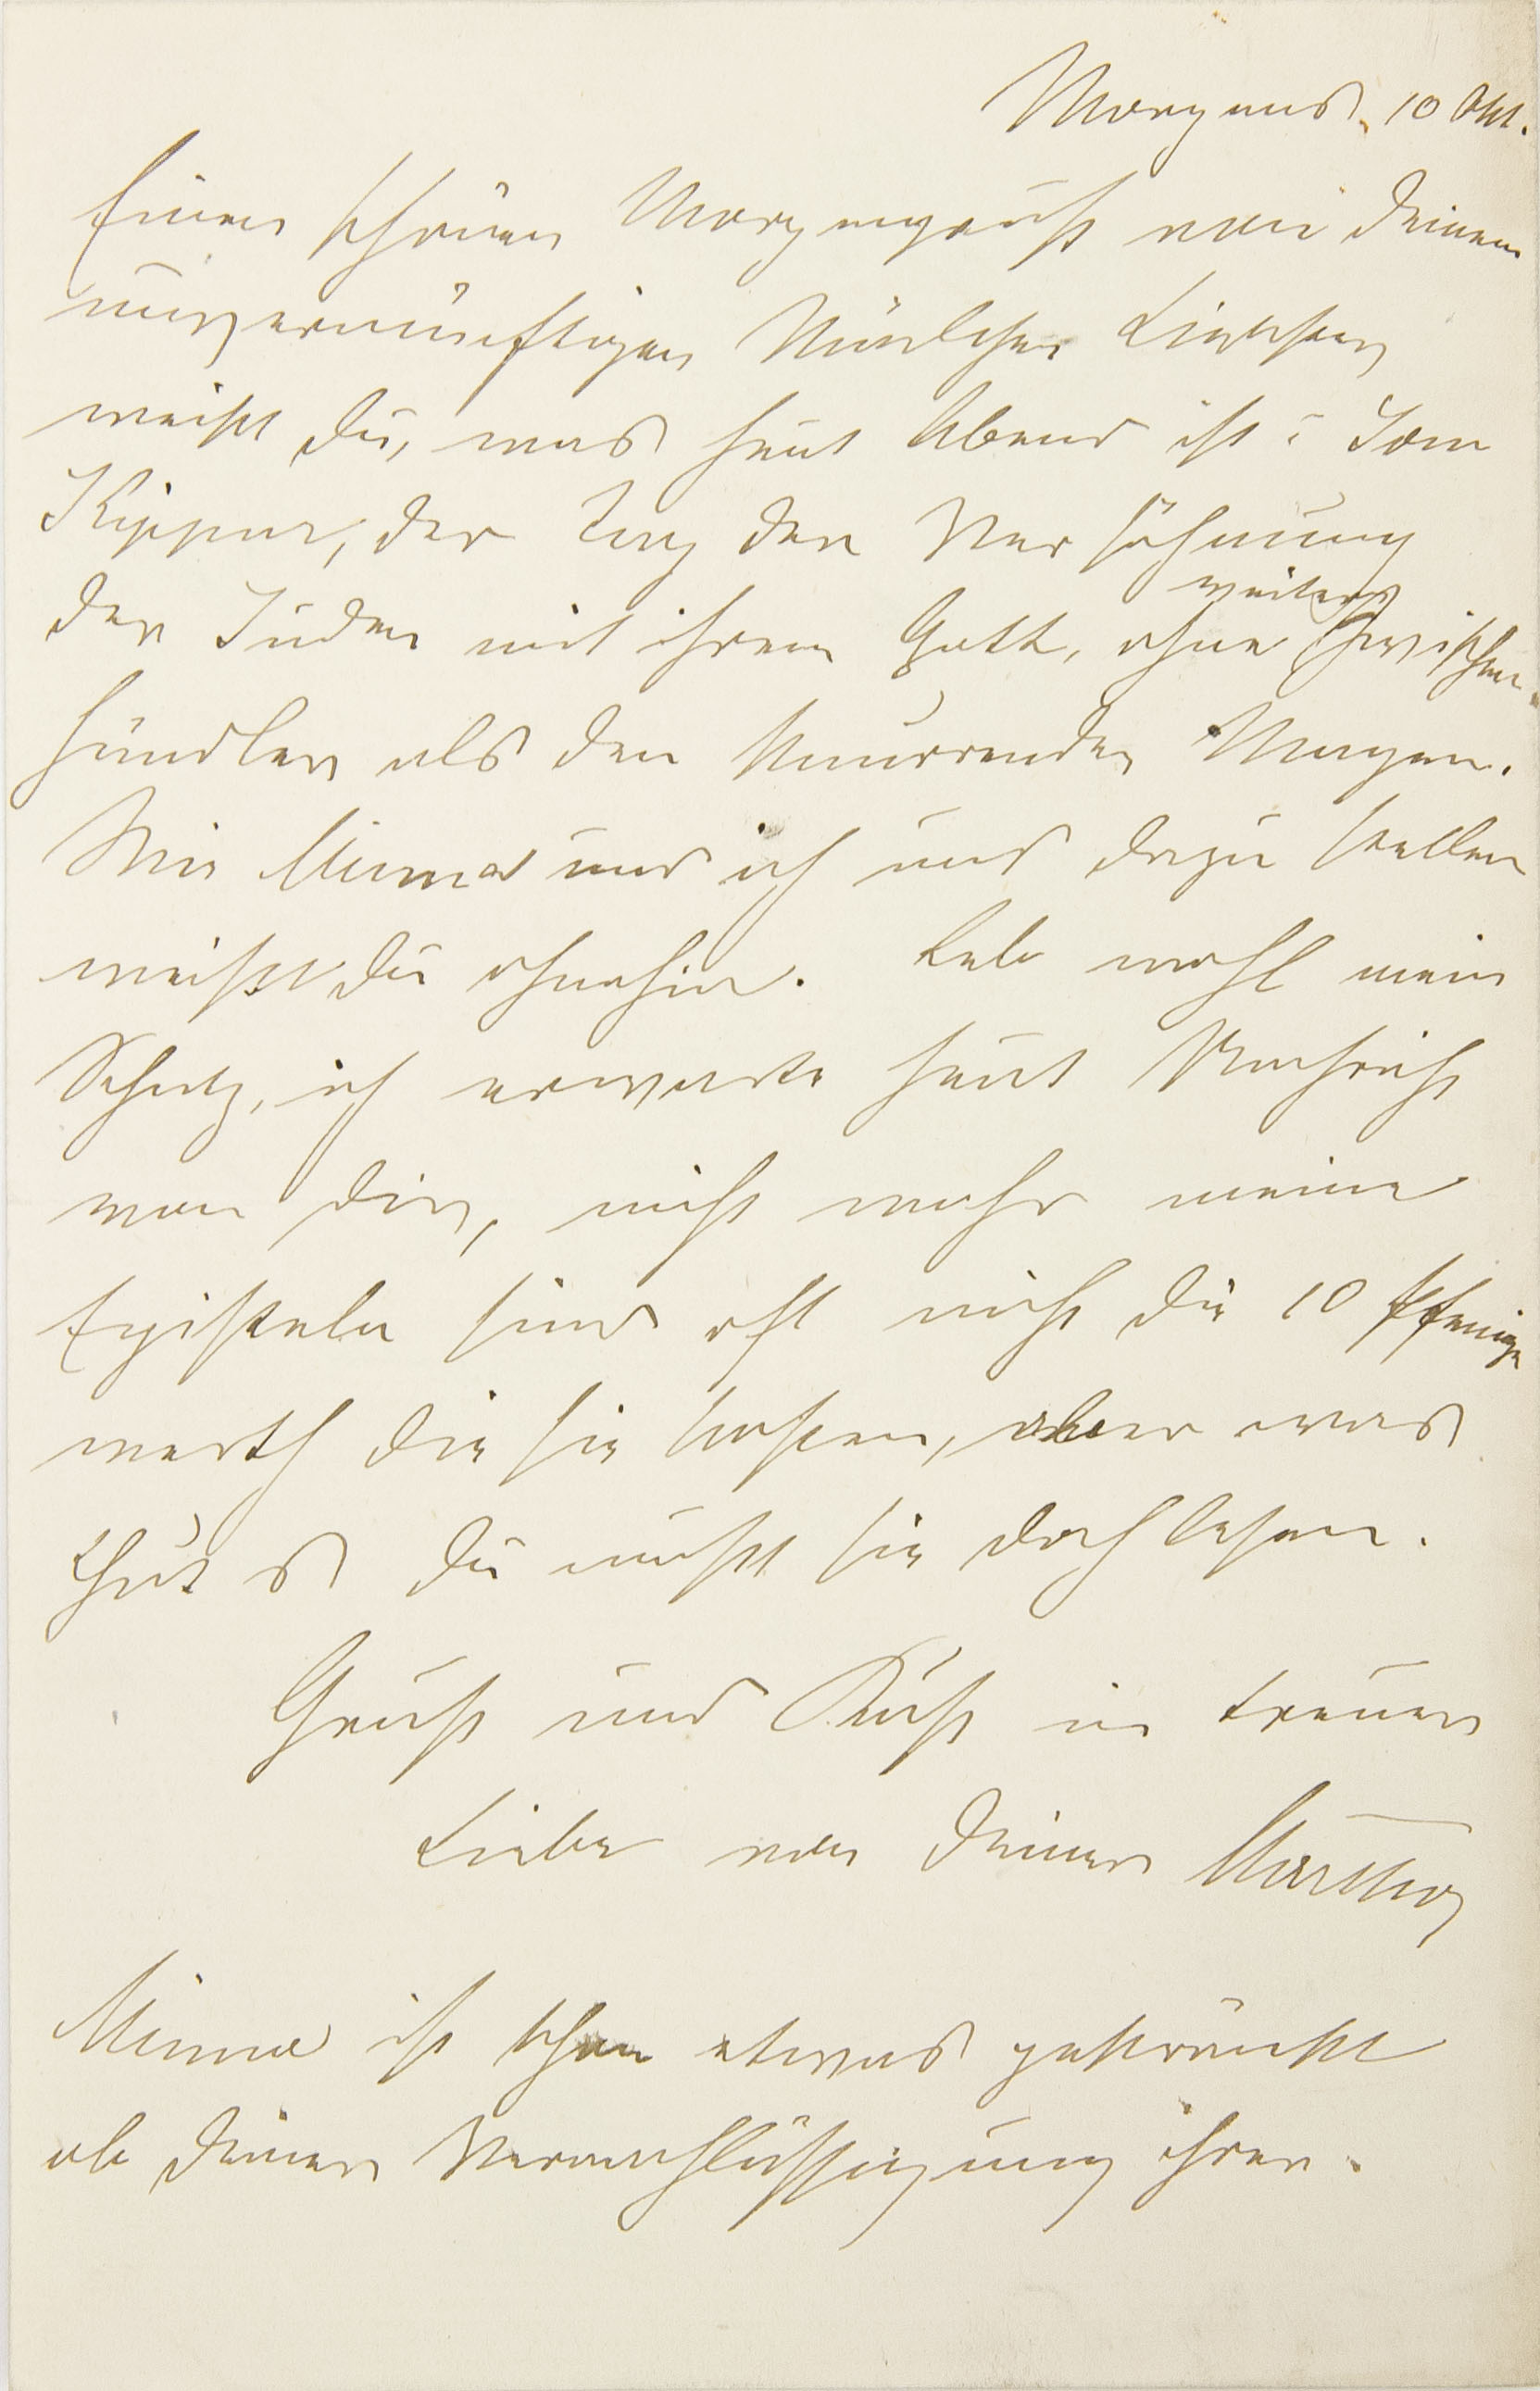 Morgens, 10 Okt.
Einen schönen Morgengruß von Deinem
unvernünftigen Mädchen Liebster,
weißt Du, was heut Abend ist? Jom
Kippur, der Tag der Versöhnung
der Juden mit ihrem Gott, ohne weiteren Zwischen-
händler als den knurrenden Magen.
Wie Minna und ich uns dazu stellen
weißt Du ohnehin. Leb wohl mein
Schatz, ich erwarte heut Nachricht
von Dir, nicht wahr meine
Episteln sind oft nicht die 10 Pfenige
werth die sie kosten, aber was
thut es Du mußt sie doch lesen.
Gruß und Kuß in treuer
Liebe von Deiner Martha
Minna ist schon etwas gekränkt
ob Deiner Vernachlässigung ihrer.